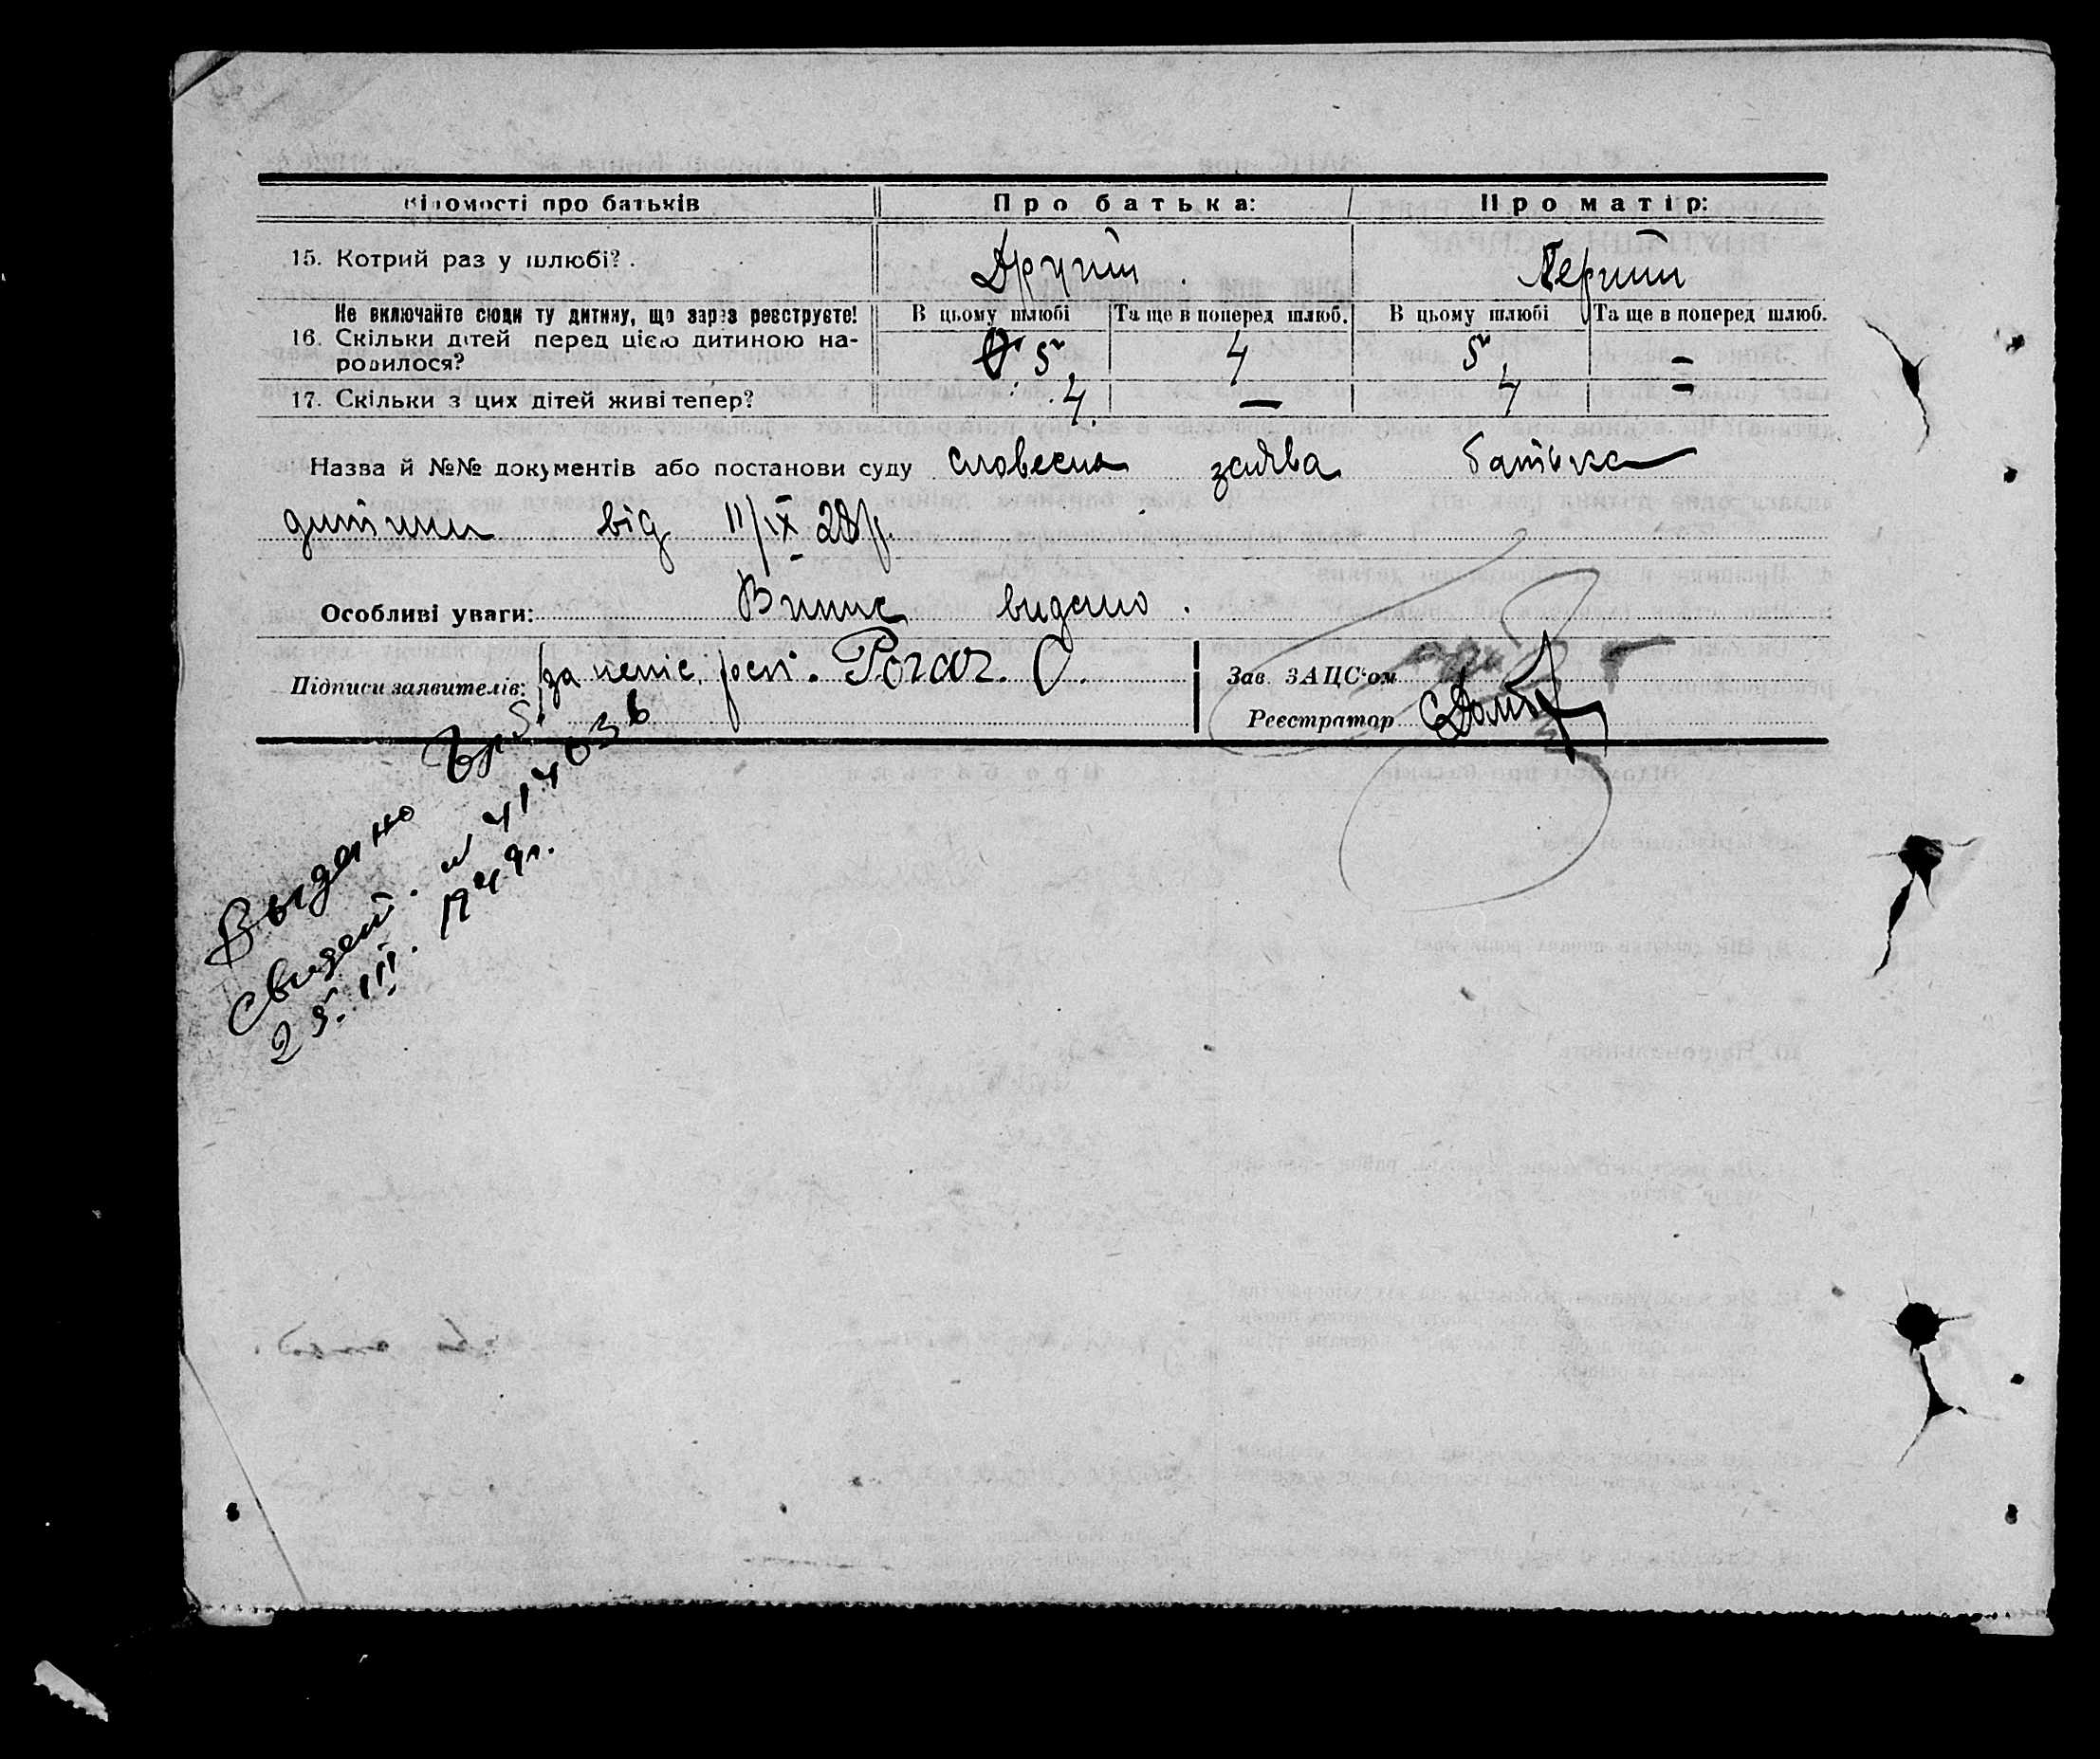 Відомості про батьків Про батька: Про матір:
15. Котрий раз у шлюбі? Другий Перший
Не включайте сюди ту дитину, що зараз реєструєте! В цьому шлюбі Та ще в поперед шлюб. В цьому шлюбі Та ще в поперед шлюб.
16. Скільки дітей перед цією дитиною на- 5 4 5 –
родилося?
17. Скільки з цих дітей живі тепер? 4 — 4 –
Назва й №№ документів або постанови суду словесна заява батька
дитини від 11/IX 28 р.
Особливі уваги: Випис видано.
Підписи заявителів: за непис. Рогач. О. Зав. ЗАЦС'ом
Реєстратор
Выдано
свидет. № 414036
25. III. 1949 г.